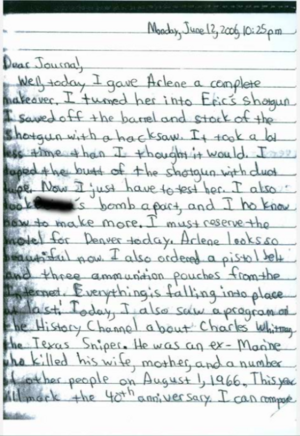 Monday, June 12, 2006, 10:25pm
Dear Journal,
Well, today I gave Arlene a complete
makeover. I turned her into Eric's shotgun
I sawed off the barrel and stock of the
shotgun with a hacksaw. It took a lot
less time than I thought it would. I
taped the butt of the shotgun with duct
tape. Now I just have to test her. I also
took 's bomb apart, and I ho know
how to make more. I must reserve the
motel for Denver today. Arlene looks so
beautiful now. I also ordered a pistol belt
and three ammunition pouches from the
Internet. Everything is falling into place
at last! Today, I also saw a program on
the History Channel about Charles Whitman,
the Texas Sniper. He was an ex-Marine
who killed his wife, mother, and a number
of other people on August 1, 1966. This year
will mark the 40th anniversary. I can